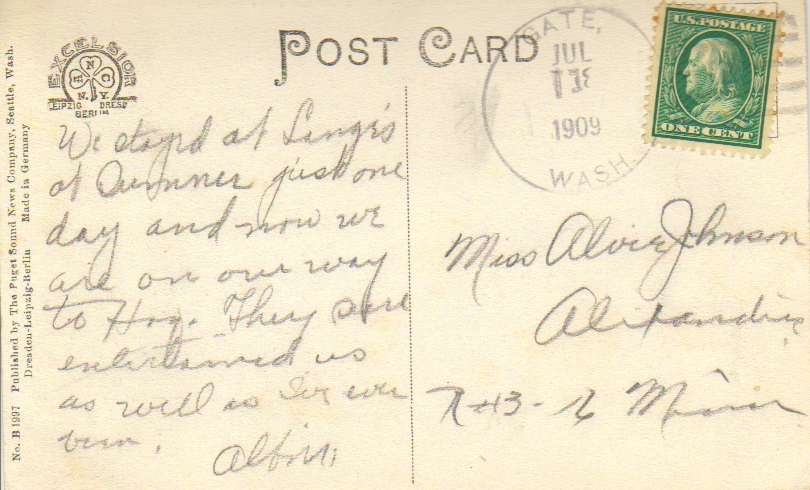 No. B 1997 Published by The Puget Sound News Company, Seattle, Wash.
Dresden-Leipzig-Berlin Made in Germany
EXCELSIOR
LEIPZIG DRESD
BERLIN
POST CARD
GATE,
JUL
1909
WASH.
U.S. POSTAGE
ONE CENT
We stayd at Lange's
at Sumner just one
day and now we
are on our way
to Hoq. They sure
entertained us
as well as I've ever
been.
Miss Alvie Johnson
Alexandria
R#3- Minn